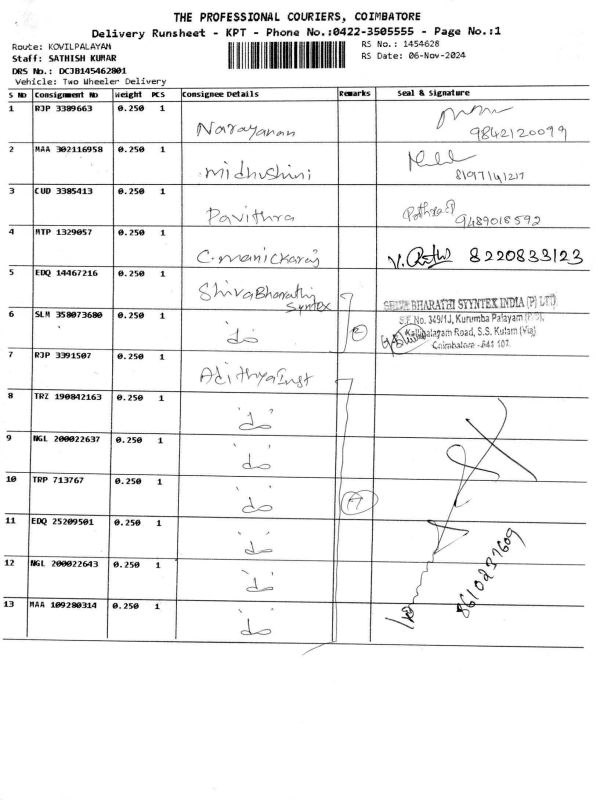 THE PROFESSIONAL COURIERS, COIMBATORE
Delivery Runsheet - KPT - Phone No.:0422-3505555 - Page No.:1
Route: KOVILPALAYAM
RS No.: 1454628
Staff: SATHISH KUMAR
RS Date: 06-Nov-2024
DRS No.: DCJB145462801
Vehicle: Two Wheeler Delivery
S No Consignment No Weight PCS Consignee Details Remarks Seal & Signature
1 RJP 3389663 0.250 1
Narayanan
9842120099
2 MAA 302116958 0.250 1
midhushini
8197141217
3 CUD 3385413 0.250 1
Pavithra
9489018592
4 MTP 1329057 0.250 1
C.manickaraj
8220833123
5 EDQ 14467216 0.250 1
ShivaBharathi
Syntex
BHARATHI SYYNTEX INDIA (P) LTD
6 SLM 358073680 0.250 1
S.F.No. 349/1J, Kurumba Palayam
do
2
Kallipalayam Road, S.S. Kulam (Via)
Coimbatore - 641 107.
7 RJP 3391507 0.250 1
Adithya Inst
8 TRZ 190842163 0.250 1
do
9 NGL 200022637 0.250 1
do
10 TRP 713767 0.250 1
do
7
11 EDQ 25209501 0.250 1
do
12 NGL 200022643 0.250 1
do
8610237609
13 MAA 109280314 0.250 1
do